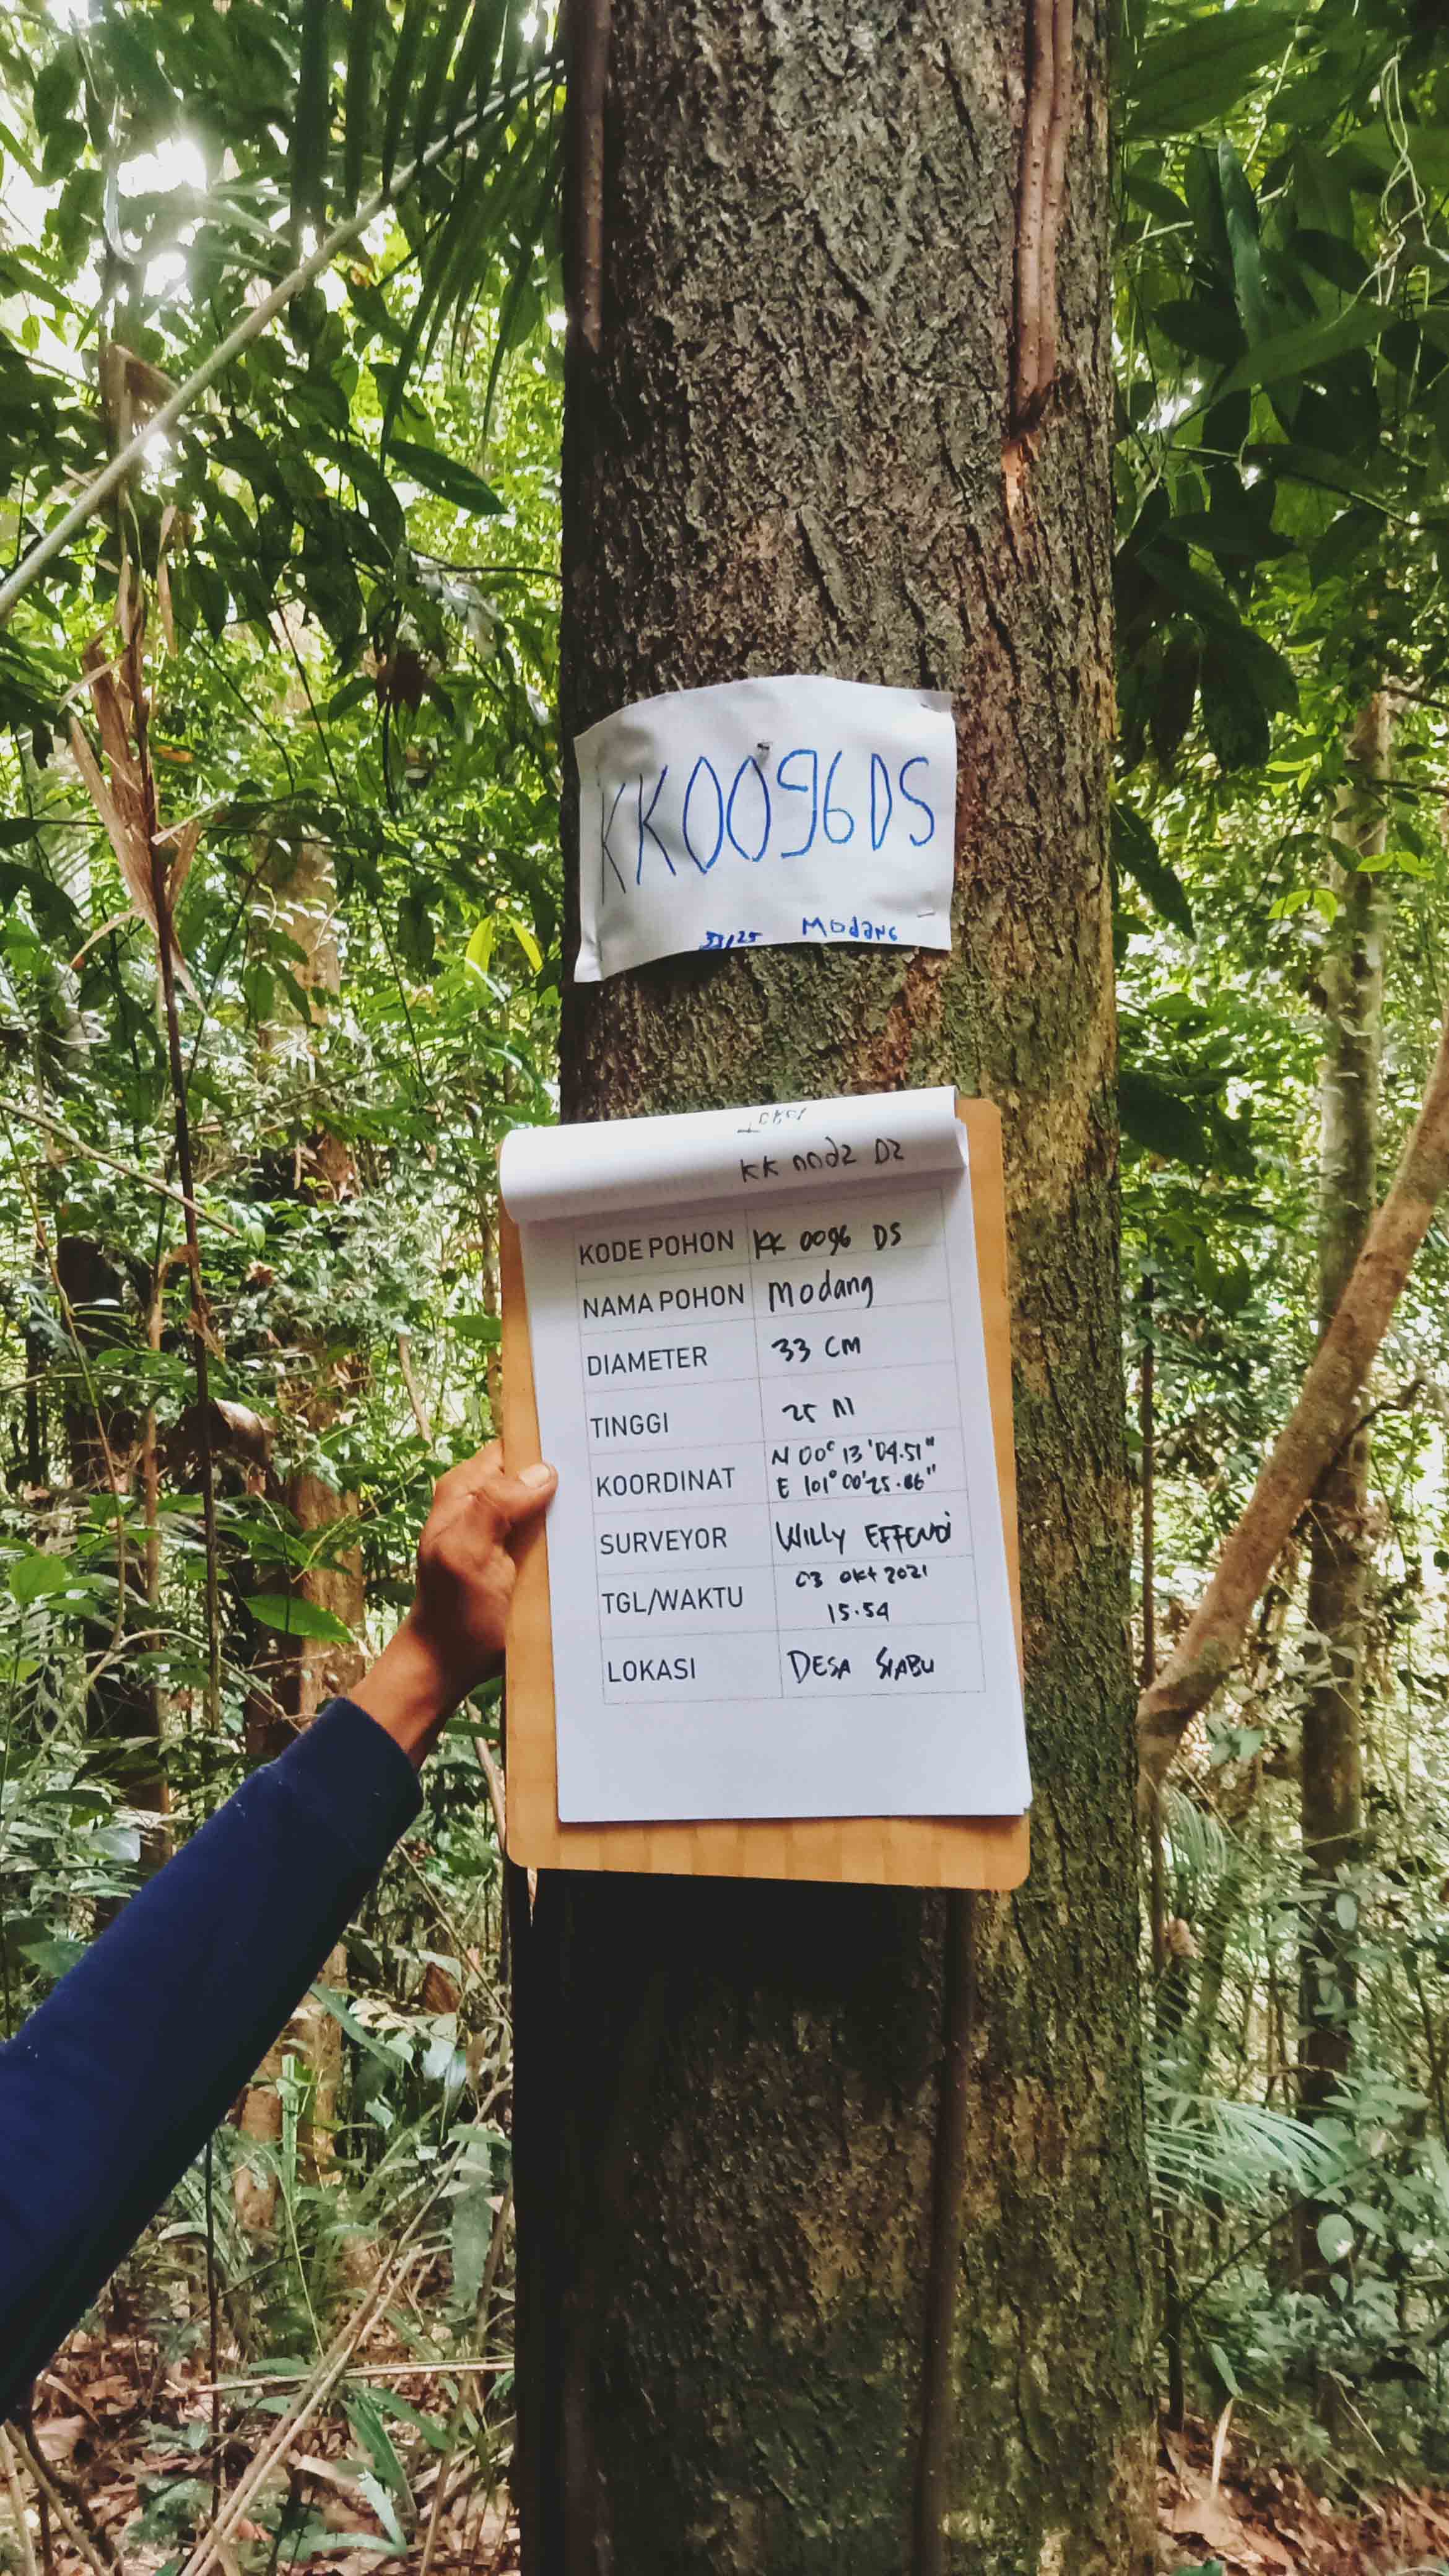 KK0096DS
33/25 Modang
KODE POHON KK 0096 DS
NAMA POHON Modang
DIAMETER 33 CM
TINGGI 25 M
KOORDINAT N 00° 13'04.51"
E 101°00'25.86"
SURVEYOR WILLY EFFENDI
TGL/WAKTU 03 Okt 2021
15.54
LOKASI DESA SIABU